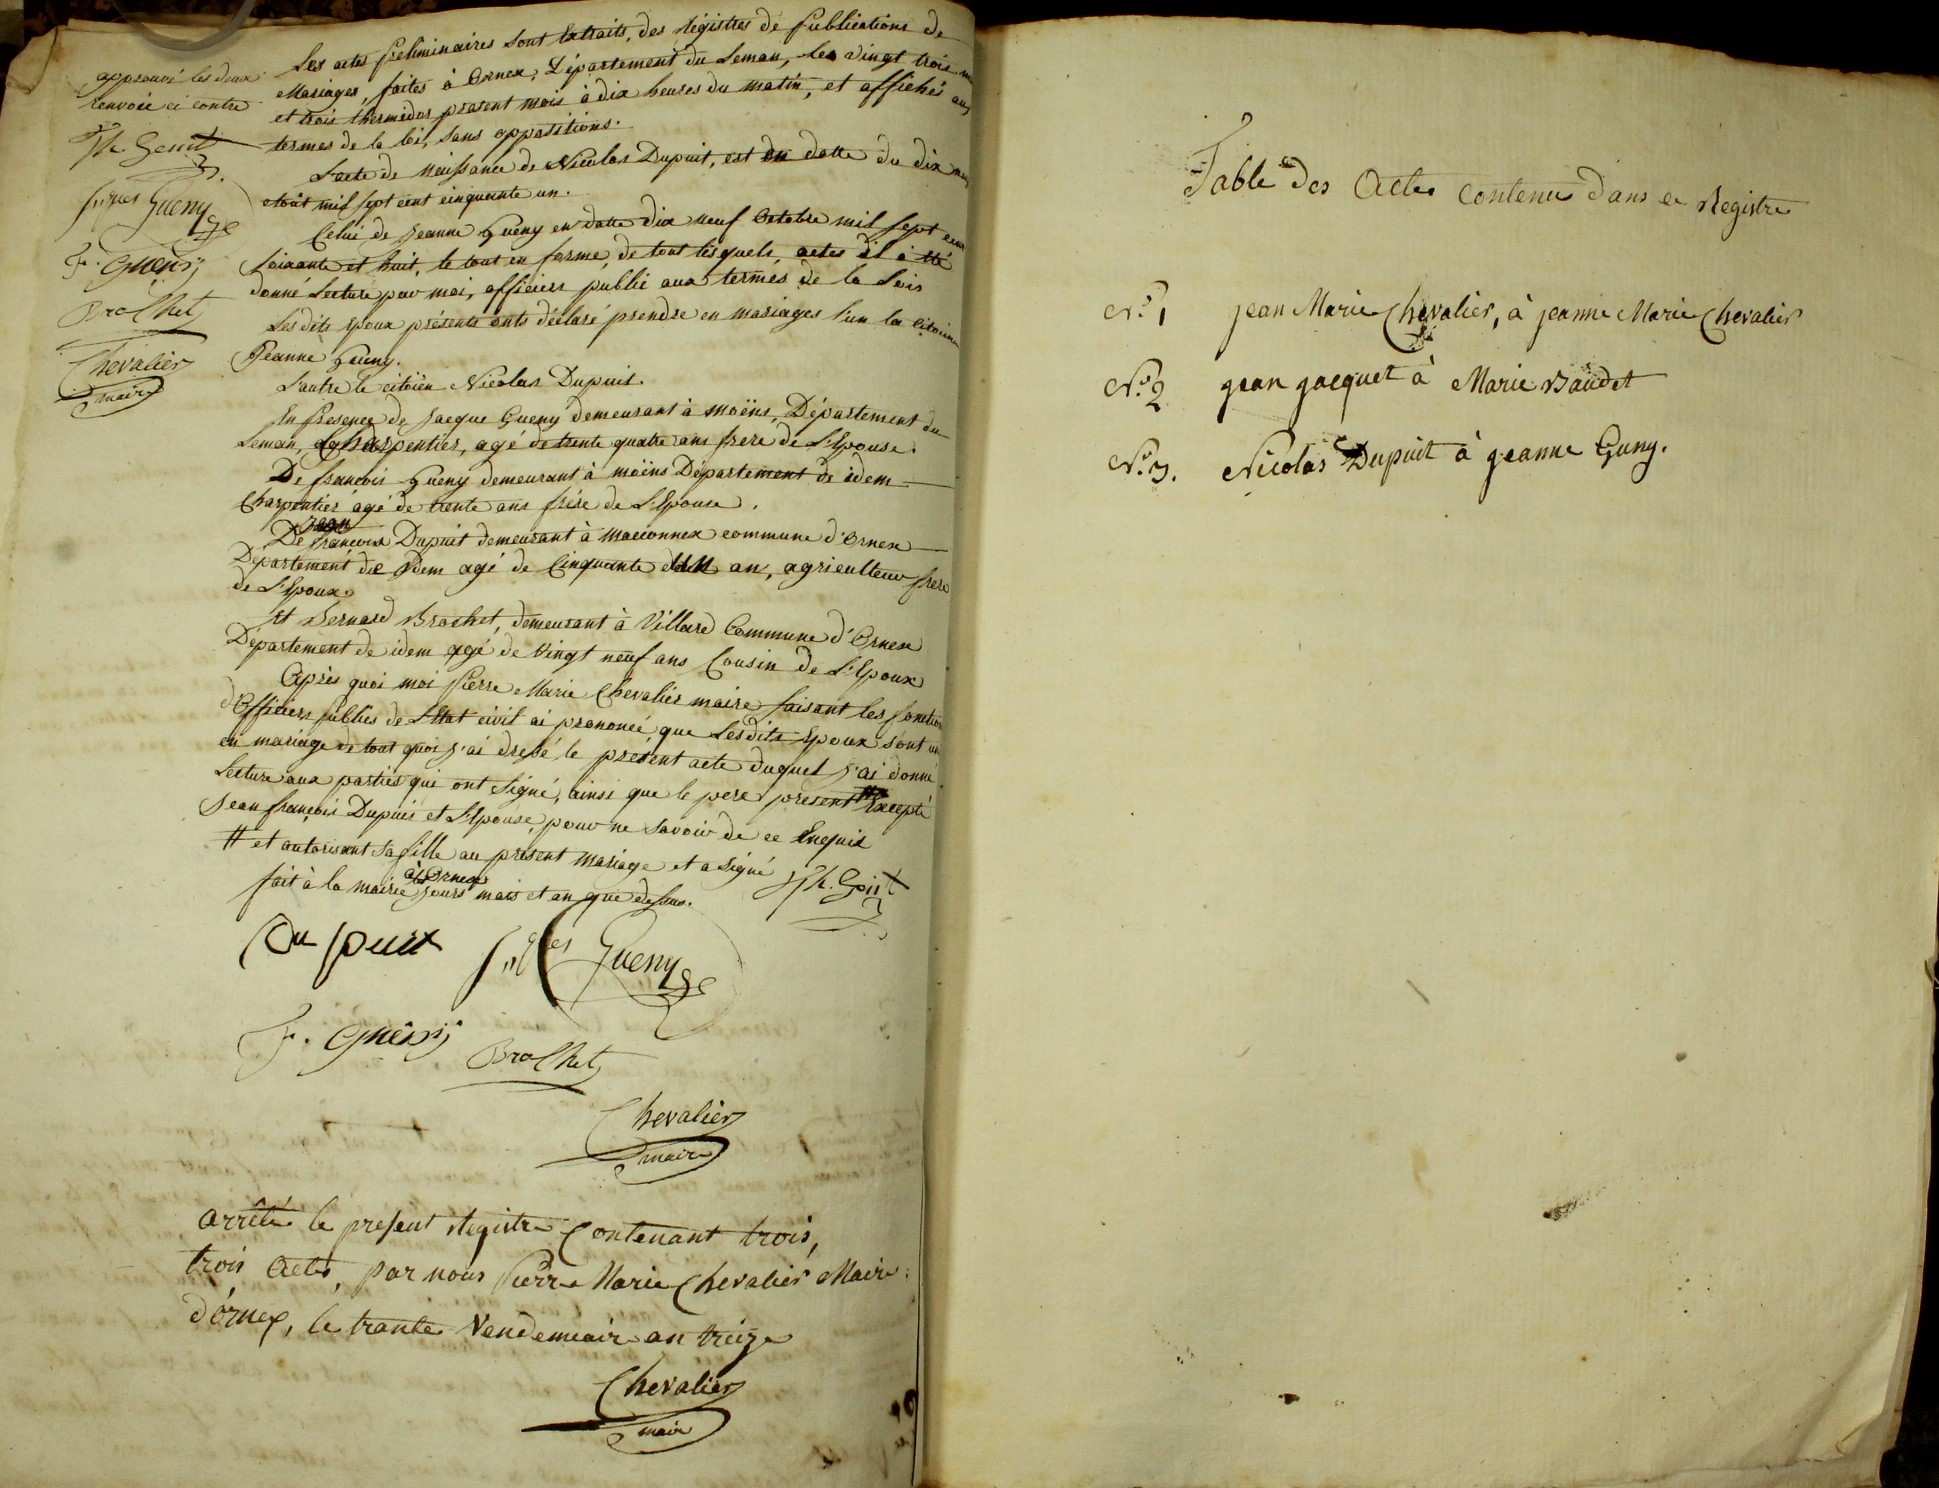 approuvé les deux
renvoie ci contre
Gueny
F. Guenÿ
Brochet
Chevalier
maire
Les actes préliminaires sont Extraits, des Régistres de Publications de
Mariages, faites à Ornex, Département du Leman, les vingt trois
et trois thermidor present mois à dix heures du matin, et affichés aux
termes de la loi, sans oppositions.
L'acte de Naissance de Nicolas Dupuit, est en datte du dix neuf
août mil sept cent cinquante un.
Celui de Jeanne Gueny en datte dix neuf Octobre mil sept cent
soixante et huit, le tout en forme, de tout lesquels, actes il a été
donné Lecture par moi, officiers public aux termes de la Lois
Les dits Epoux présents onts déclaré prendre en mariages l'un la Citoienne
Jeanne Gueny.
L'autre le citoïen Nicolas Dupuit.
En Presence de Jacque Gueny demeurant à moëns, Département du
Leman, Charpentier, agé de trente quatre ans frere de L'Epouse.
De francois Gueny demeurant à moëns Département de idem
Charpentier agé de trente ans frère de L'Epouse.
Jean
De francois Dupuit demeurant à maconnex commune d'Ornex
Département de Idem agé de Cinquante un an, agriculteur frere
de L'Epoux.
Et Bernard Brochet, demeurant à Villard Commune d'Ornex
Département de idem agé de Vingt neuf ans Cousin de L'Epoux
Après quoi moi Pierre Marie Chevalier maire faisant les fonctions
d'Officiers Publics de L'Etat civil ai prononcé, que Lesdits Epoux sont unis
en mariage de tout quoi j'ai dressé le present acte duquel j'ai donné
Lecture aux parties qui ont signé, ainsi que le pere present # Excepté
Jean françois Dupuis et L'Epouse, pour ne savoir de ce Enquis
# et autorisant sa fille au présent mariage et a signé
à Ornex
fait à la mairie jours mois et an que dessus.
Dupuit
Gueny
F. Guenÿ
Brochet
Chevalier
maire
arrêté le present Registre Contenant trois,
trois Actes, par nous Pierre Marie Chevalier Maire
d'ornex, le trante Vendemiair an treize
Chevalier
mair
Table des Actes contenus dans ce Registre
N.º 1 jean Marie Chevalier, à jeanne Marie Chevalier
N.º 2 jean jacquet à Marie Baudet
N.º 3. Nicolas Dupuit à jeanne Guny.